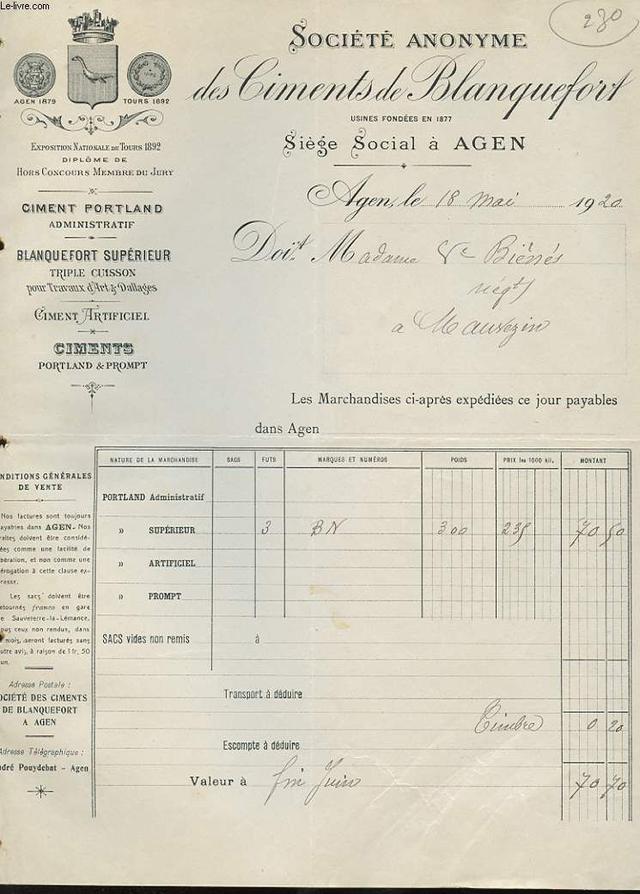 Le-livre.com
230
SOCIÉTÉ ANONYME
des Ciments de Blanquefort
USINES FONDÉES EN 1877
Siège Social à AGEN
AGEN 1879
TOURS 1892
EXPOSITION NATIONALE DE TOURS 1892
DIPLÔME DE
HORS CONCOURS MEMBRE DU JURY
CIMENT PORTLAND
ADMINISTRATIF
BLANQUEFORT SUPÉRIEUR
TRIPLE CUISSON
pour Travaux d'Art & Dallages
CIMENT ARTIFICIEL
CIMENTS
PORTLAND & PROMPT
Agen, le 18 mai 1920
Doit Madame Vᵉ
négt
a Mauvezin
Les Marchandises ci-après expédiées ce jour payables
dans Agen
NATURE DE LA MARCHANDISE SACS FUTS MARQUES ET NUMÉROS POIDS PRIX les 1000 kil. MONTANT
PORTLAND Administratif
» SUPÉRIEUR 3 BN 300 235 70 50
» ARTIFICIEL
» PROMPT
SACS vides non remis à
Transport à déduire
Timbre 0 20
Escompte à déduire
Valeur à fin Juin 70 70
ONDITIONS GÉNÉRALES
DE VENTE
Nos factures sont toujours
ayables dans AGEN. Nos
raites doivent être considé-
ées comme une facilité de
bération, et non comme une
érogation à cette clause ex-
resse.
Les sacs doivent être
etournés franco en gare
e Sauveterre-la-Lémance,
ous ceux non rendus, dans
mois, seront facturés sans
utre avis, à raison de 1 fr. 50
un.
Adresse Postale :
OCIÉTÉ DES CIMENTS
DE BLANQUEFORT
A AGEN
Adresse Télégraphique :
ndré Pouydebat - Agen